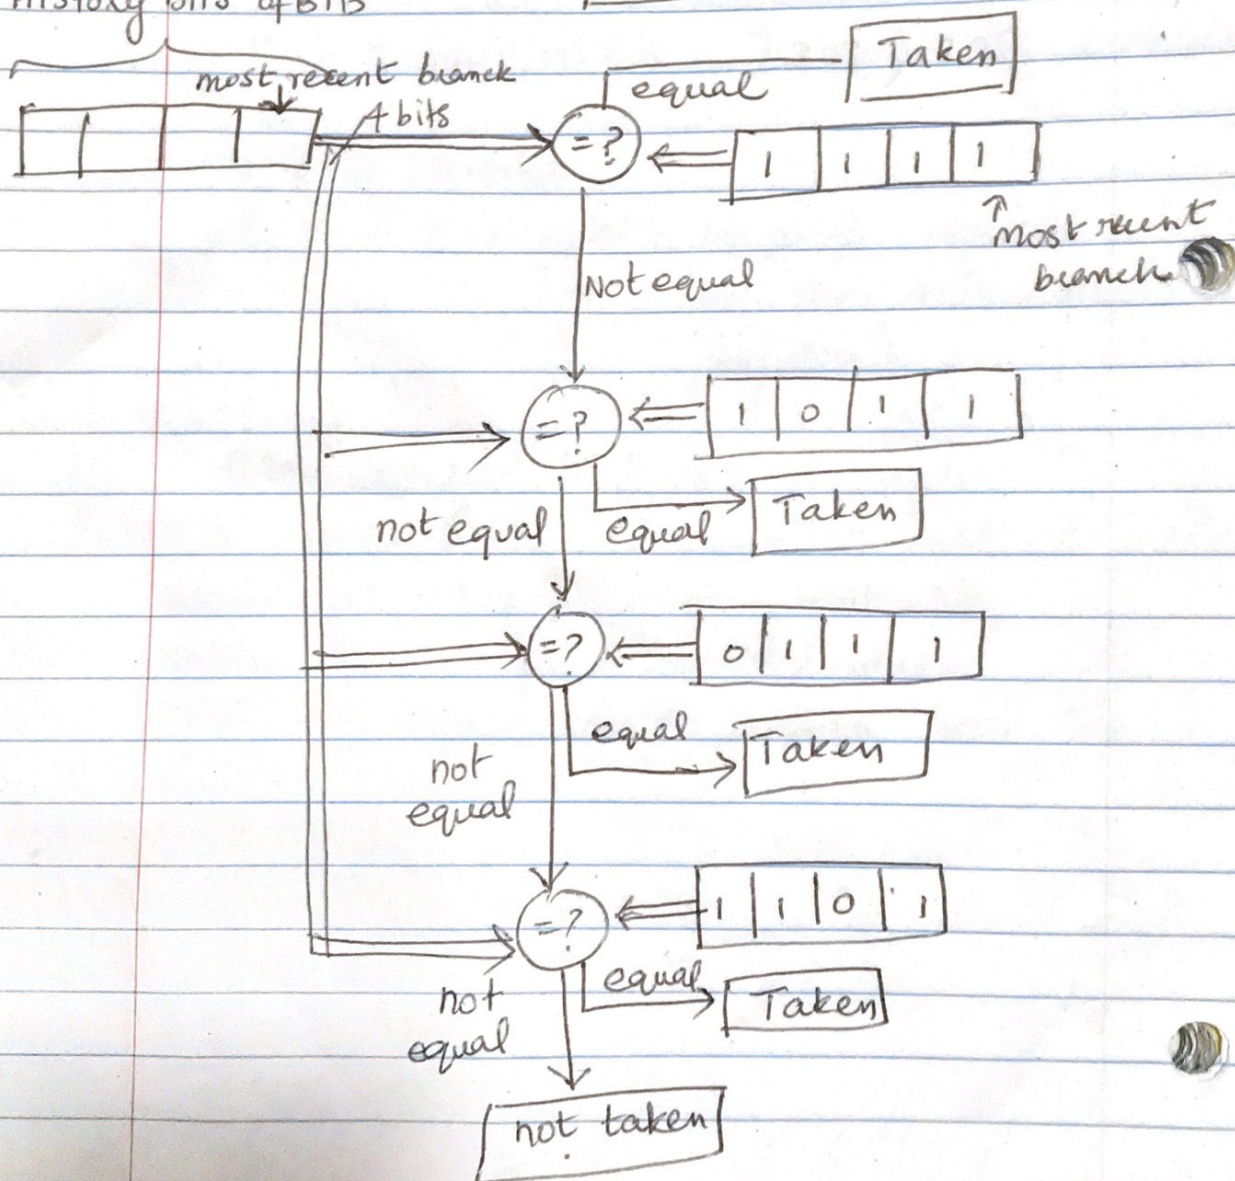 History bits of BTB
most recent branch
4 bits
= ?
equal
Taken
1 1 1 1
most recent
branch
Not equal
= ?
1 0 1 1
not equal
equal
Taken
= ?
0 1 1 1
equal
Taken
not
equal
= ?
1 1 0 1
equal
Taken
not
equal
not taken